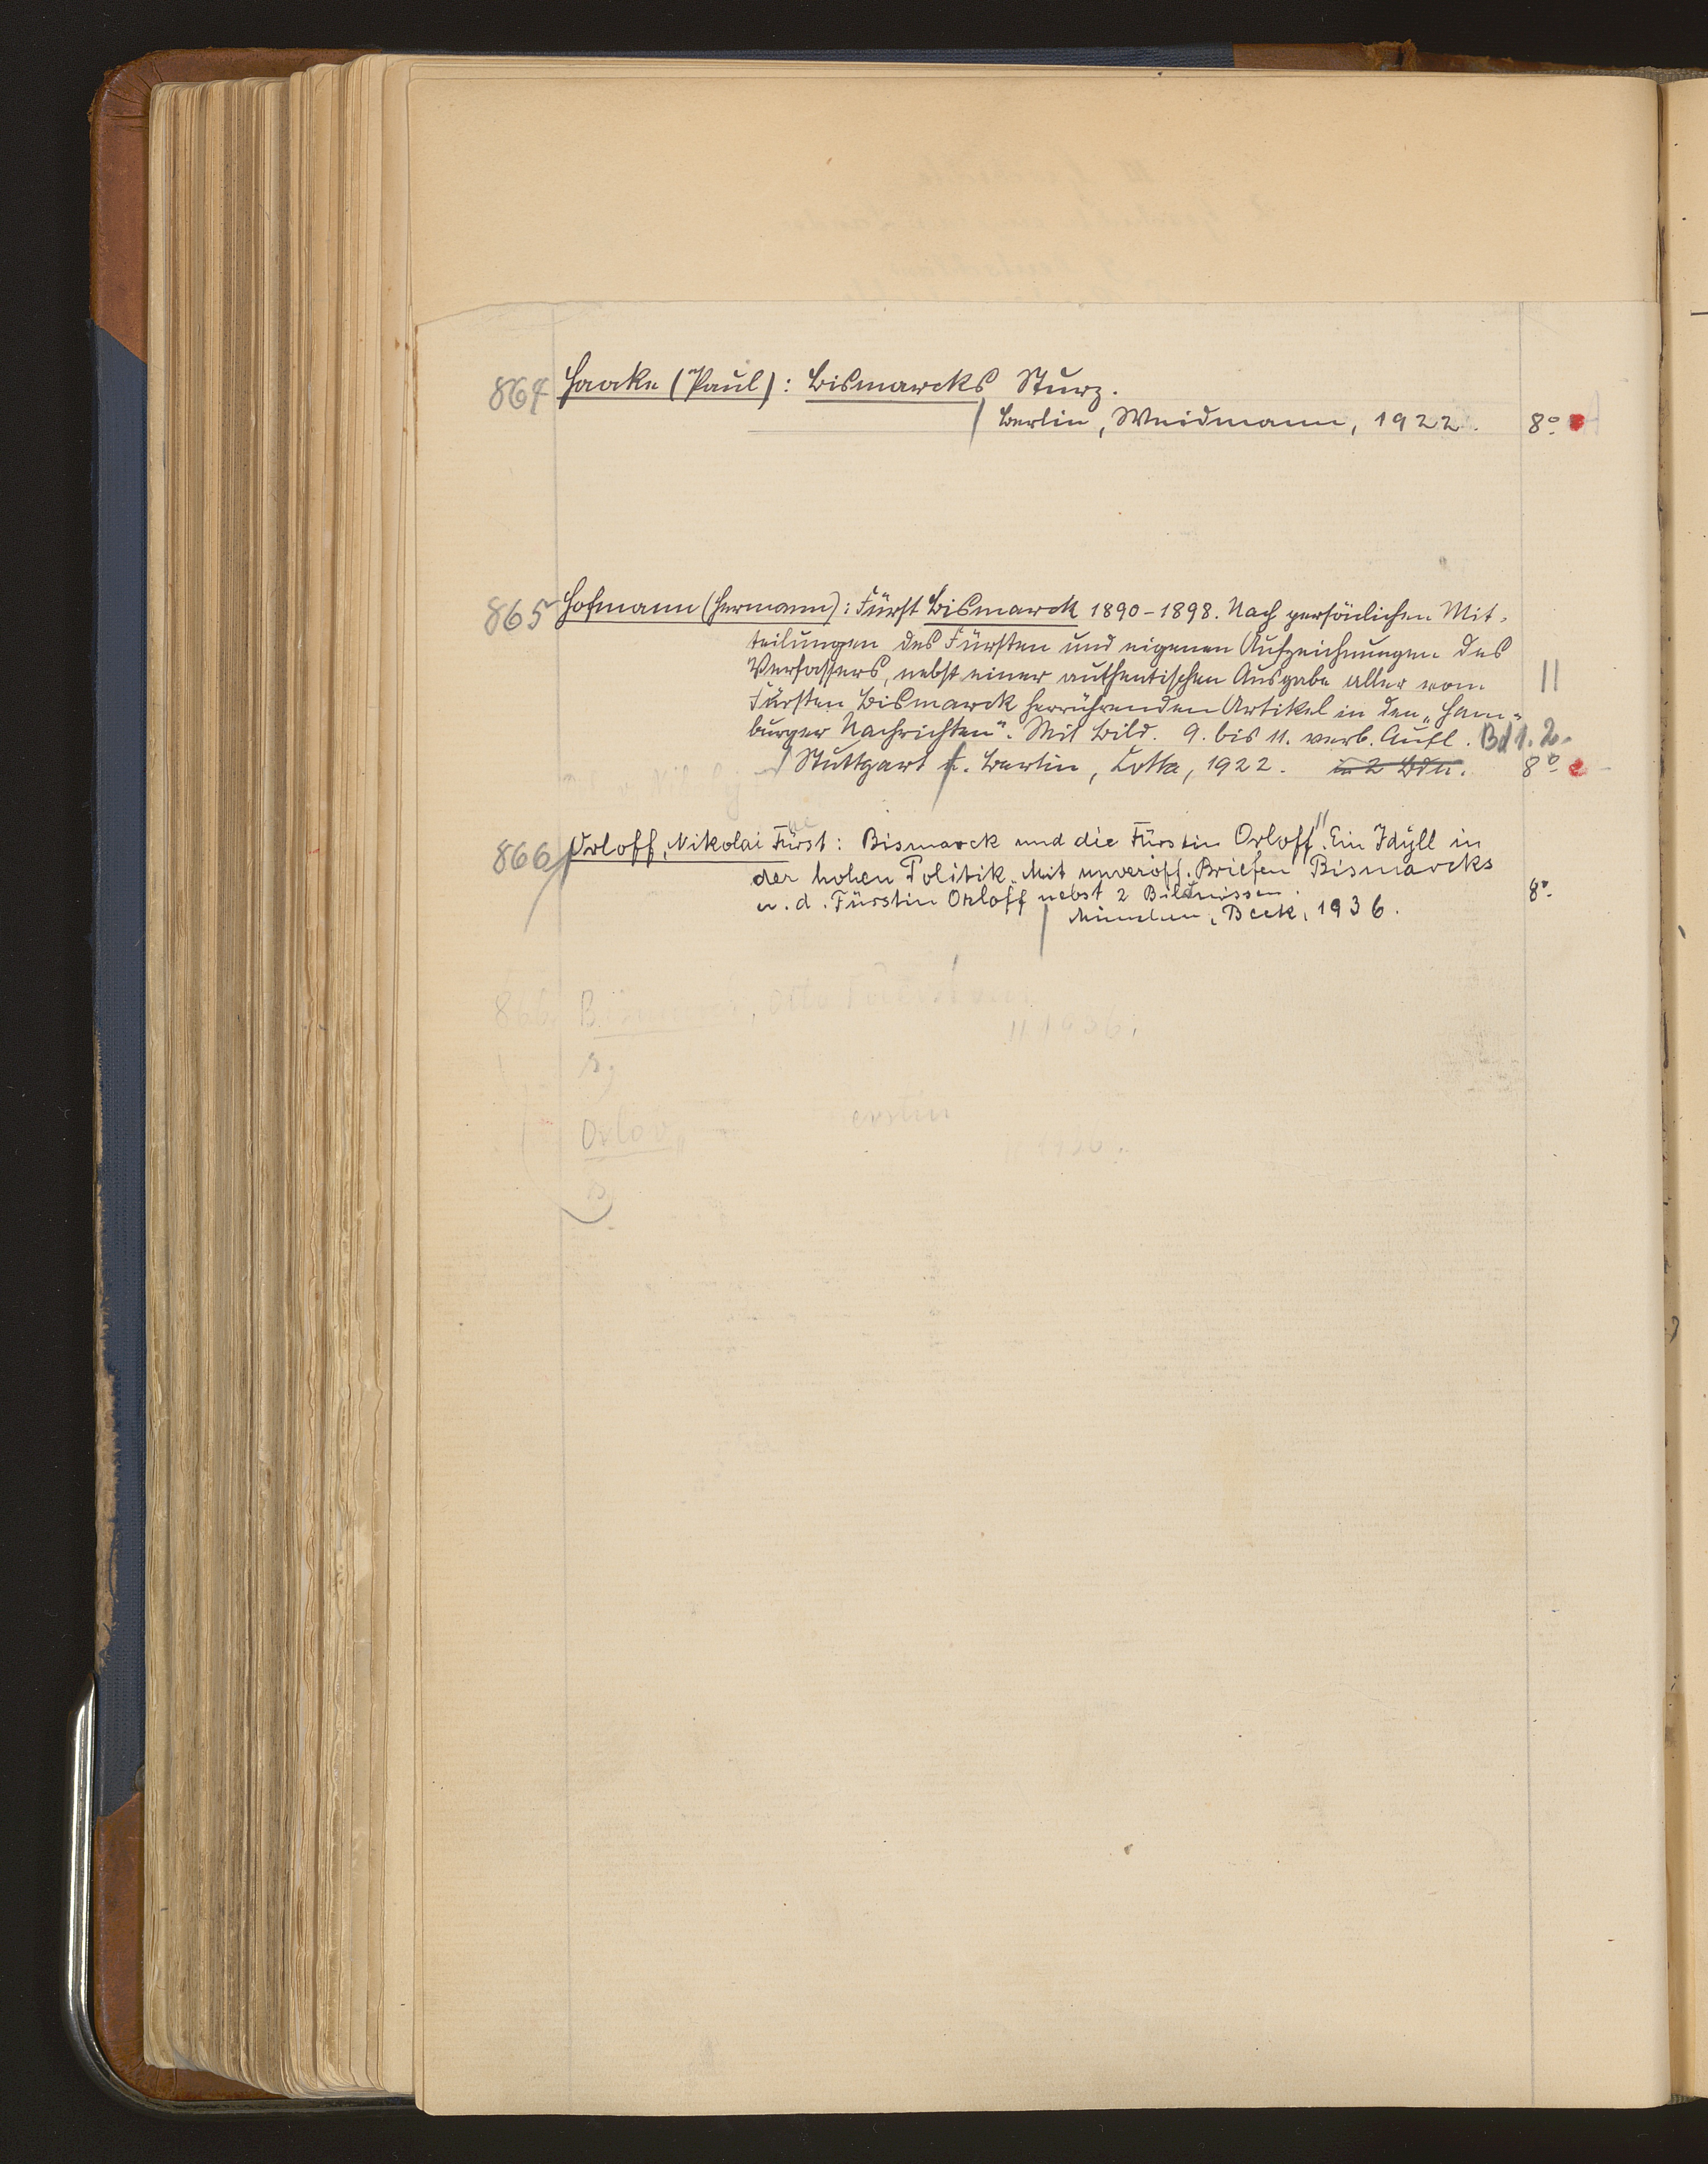 864 Haake (Paul): Bismarcks Sturz.
Berlin, Weidmann, 1922. 8º
865 Hofmann (Hermann): Fürst Bismarck 1890-1898. Nach persönlichen Mit-
teilungen des Fürsten und eigenen Aufzeichnungen des
Verfassers, nebst einer authentischen Ausgabe aller vom
Fürsten Bismarck herrührenden Artikel in den „Ham-
burger Nachrichten". Mit Bild. 9. bis 11. verb. Aufl. Bd 1. 2.
Stuttgart u. Berlin, Cotta, 1922. in 2 Bdn. 8º
866 Orloff, Nikolai Fürst: Bismarck und die Fürstin Orloff. Ein Idyll in
der hohen Politik. Mit unveröff. Briefen Bismarcks
u. d. Fürstin Orloff nebst 2 Bildnissen. 8º
München, Beck, 1936.
866 Bismarck, Otto Fürst von
1936.
Orlov
1936.